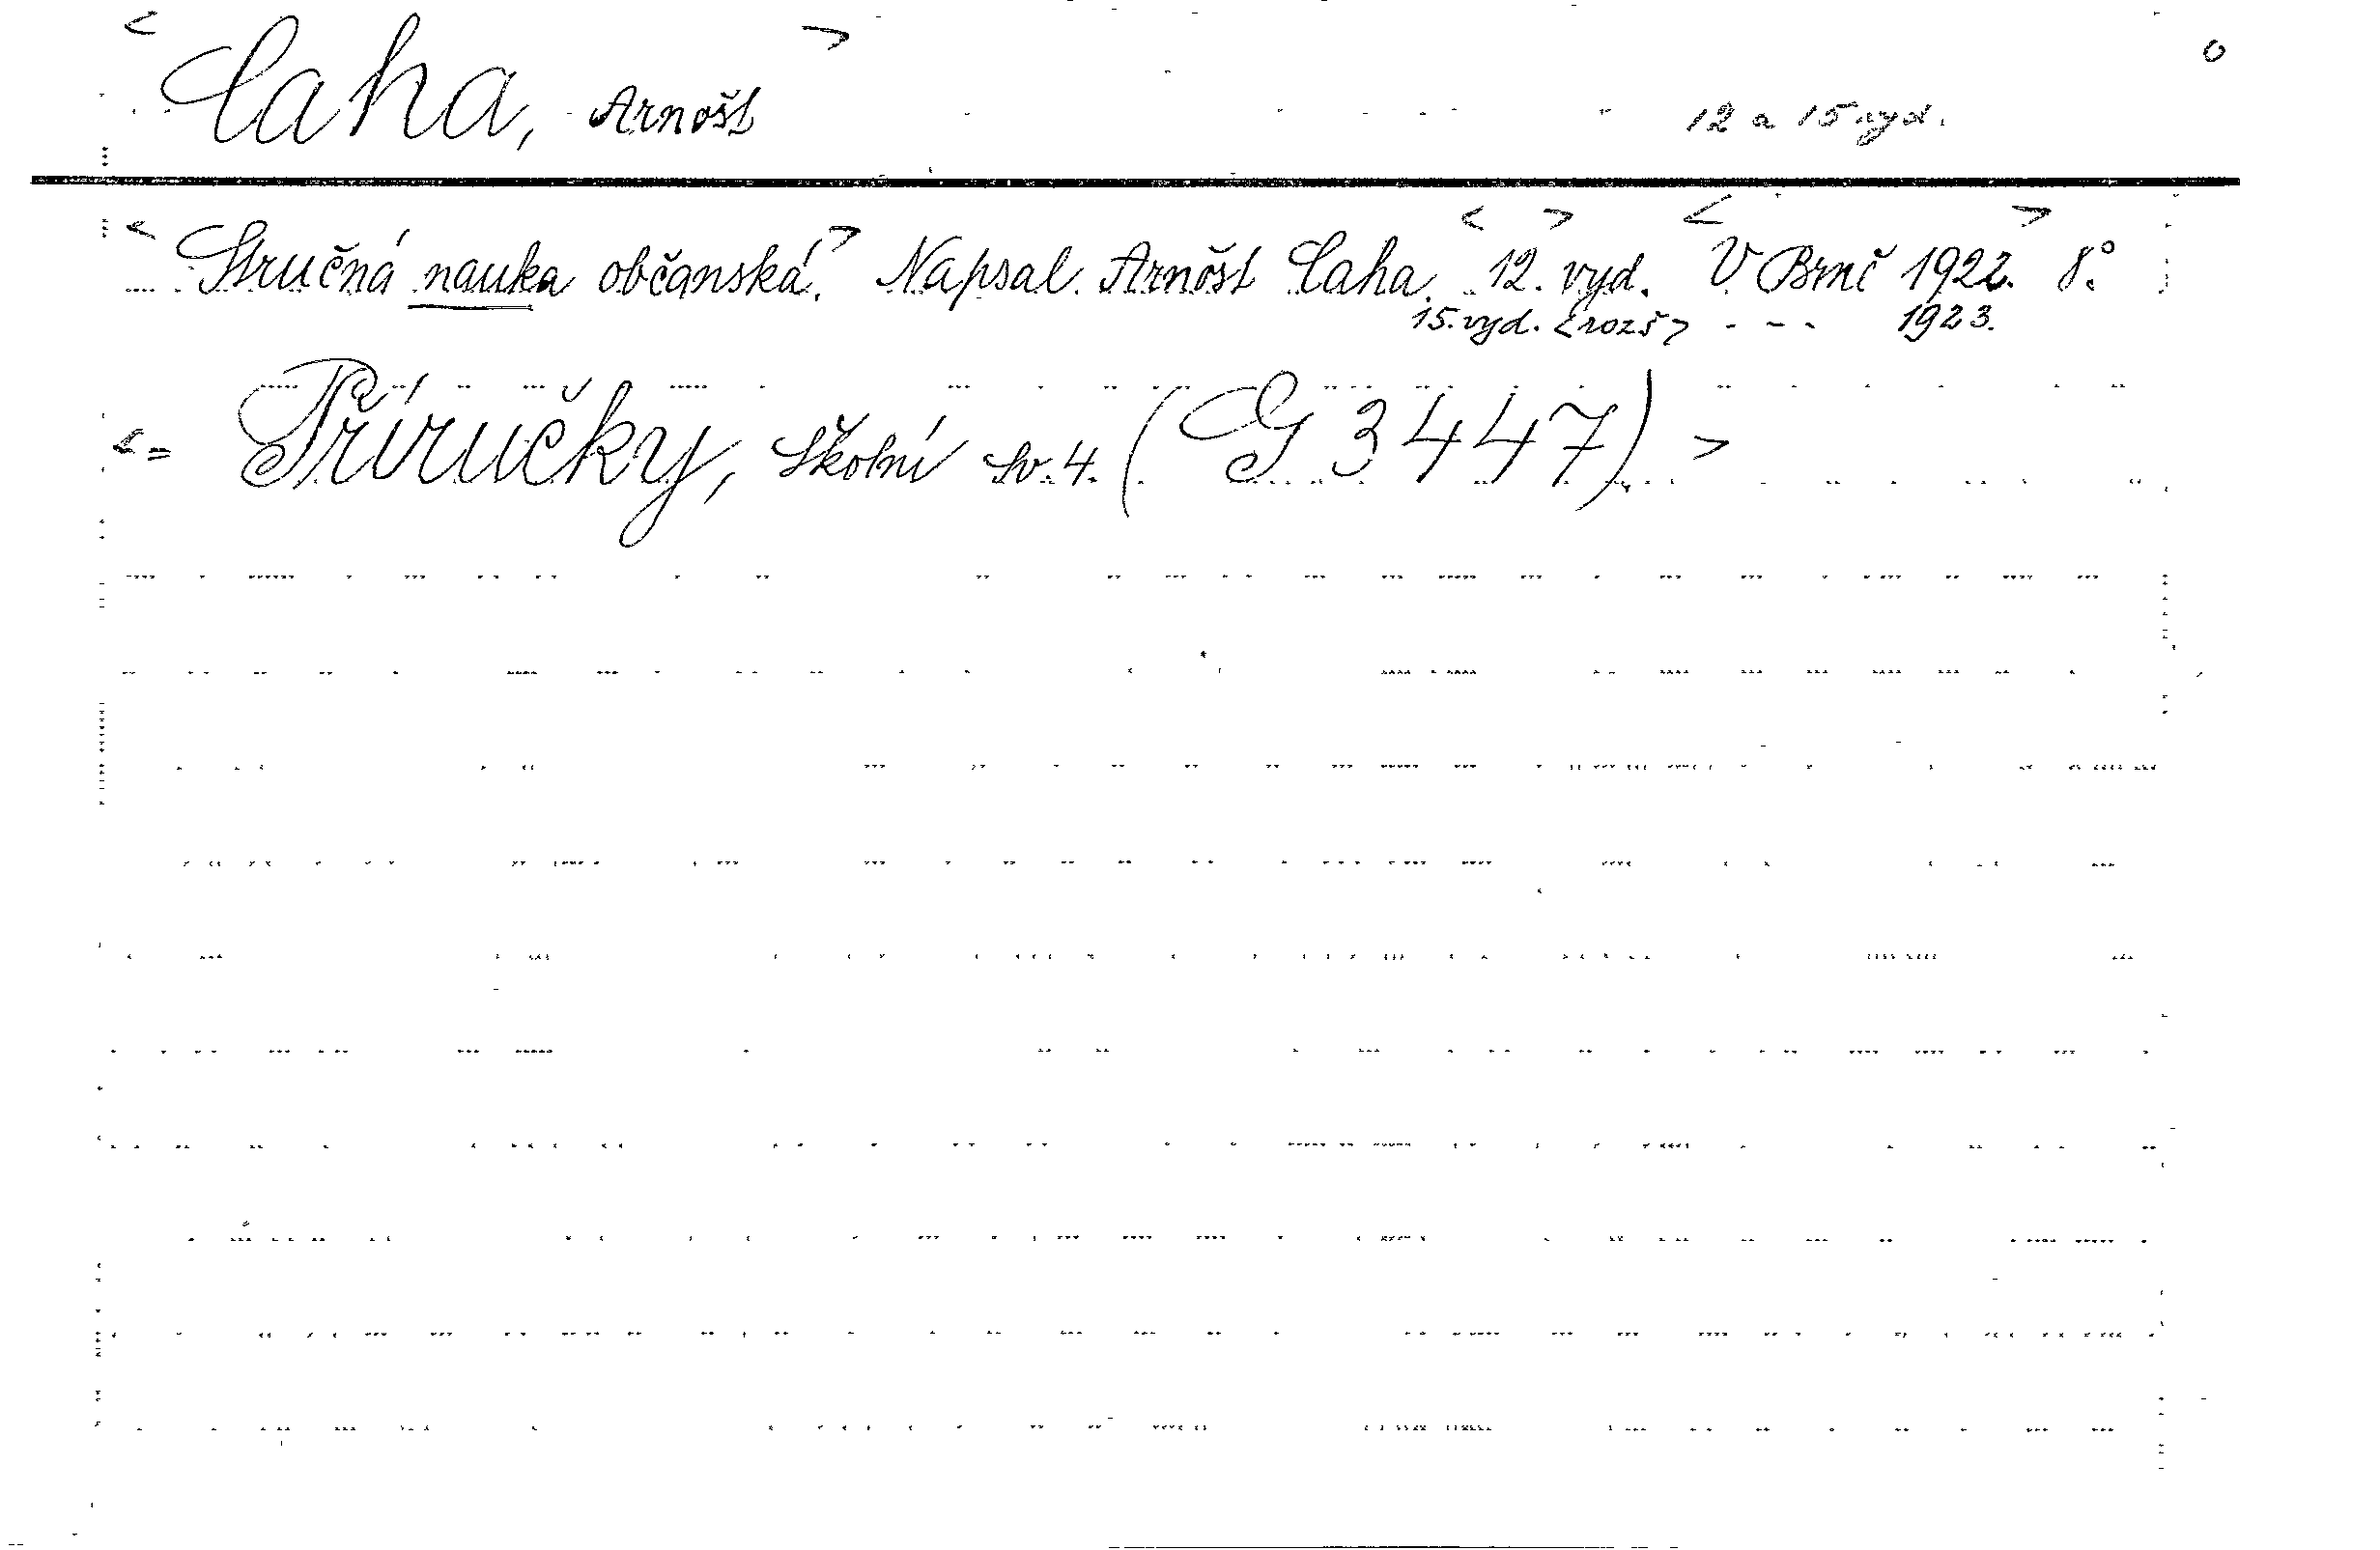 < Caha, Arnošt > 12 a 15 vyd. o
< Stručná nauka občanská. > Napsal Arnošt Caha. < 12. > vyd. < V Brně 1922. > 8°.
15. vyd. <rozš> - - - 1923.
< = Příručky, školní sv. 4. (G 3447). >